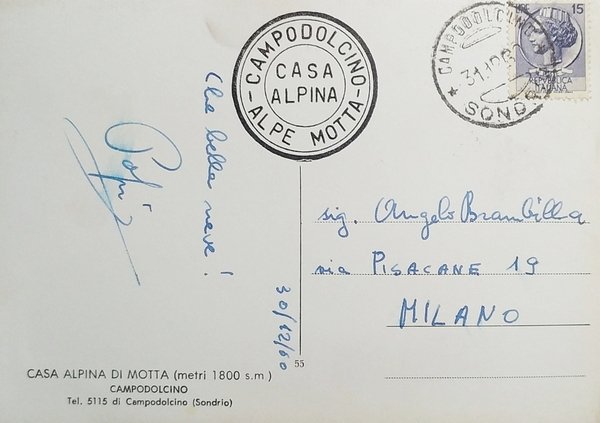 CAMPODOLCINO
CASA
ALPINA
ALPE MOTTA
CAMPODOLCINO
SONDRIO
15
REPUBBLICA
ITALIANA
Che bella neve!
30/12/60
sig. Angelo Brambilla
via PISACANE 19
MILANO
55
CASA ALPINA DI MOTTA (metri 1800 s.m)
CAMPODOLCINO
Tel. 5115 di Campodolcino (Sondrio)